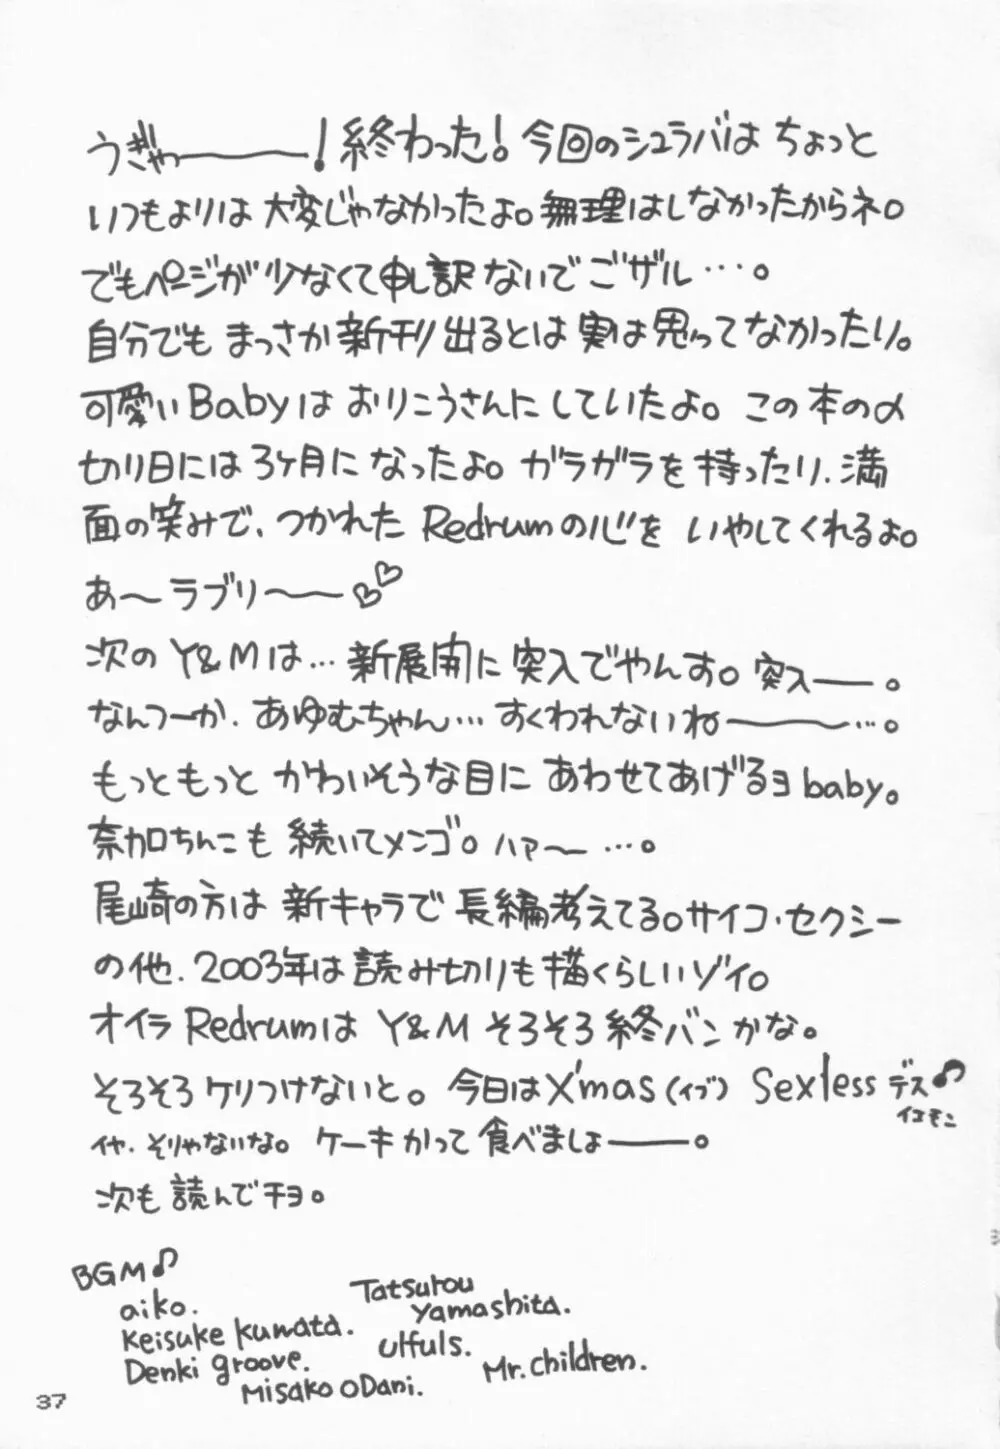 うぎゃーーー!終わった!今回のシュラバはちょっと
いつもよりは大変じゃなかったよ。無理はしなかったからネ。
でもページが少なくて申し訳ないでござル…。
自分でもまっさか新刊出るとは実は思ってなかったり。
可愛いBabyはおりこうさんにしていたよ。この本の〆
切り日には3ヶ月になったよ。ガラガラを持ったり、満
面の笑みで、つかれたRedrumの心をいやしてくれるよ。
あ〜ラブリ〜〜♡♡
次のY&Mは…新展開に突入でやんす。突入ーー。
なんつーか、あゆむちゃん…すくわれないねーーー…。
もっともっとかわいそうな目にあわせてあげるヨbaby。
奈加ちんこも続いてメンゴ。ハァ〜…。
尾崎の方は新キャラで長編考えてる。サイコ・セクシー
の他、2003年は読み切りも描くらしいゾイ。
オイラRedrumはY&Mそろそろ終バンかな。
そろそろケリつけないと。今日はX'mas(イブ)Sexlessデス♪
イエモン
イヤ、そりゃないな。ケーキかって食べましょーーー。
次も読んでチョ。
BGM♪
aiko.
Tatsurou
Yamashita.
Keisuke Kuwata.
Ulfuls.
Denki groove.
Mr.children.
Misako ODani.
37